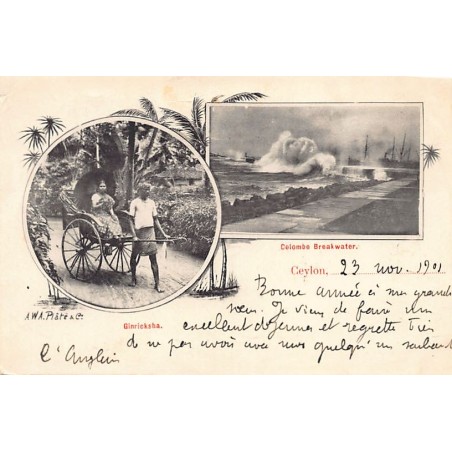 Colombo Breakwater.
Ceylon, 23 nov. 1901
Bonne année à ma grande
sœur. Je viens de faire un
excellent déjeuner et regrette très
de ne pas avoir avec nous quelqu'un sachant
l'Anglais
A.W.A. Plâté & Co
Ginricksha.